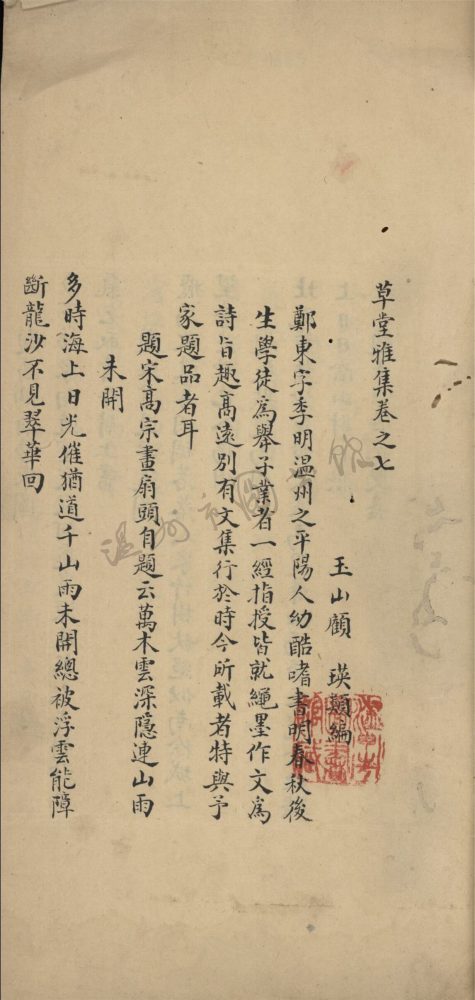 草堂雅集卷之七
玉山顧　瑛類編
鄭東字季明溫州之平陽人幼酷嗜書明春秋後
生學徒爲舉子業者一經指授皆就繩墨作文爲
詩旨趣高遠別有文集行於時今所載者特與予
家題品者耳
題宋高宗畫扇頭自題云萬木雲深隱連山雨
未開
多時海上日光催猶道千山雨未開總被浮雲能障
斷龍沙不見翠華回
溫州市圖書館